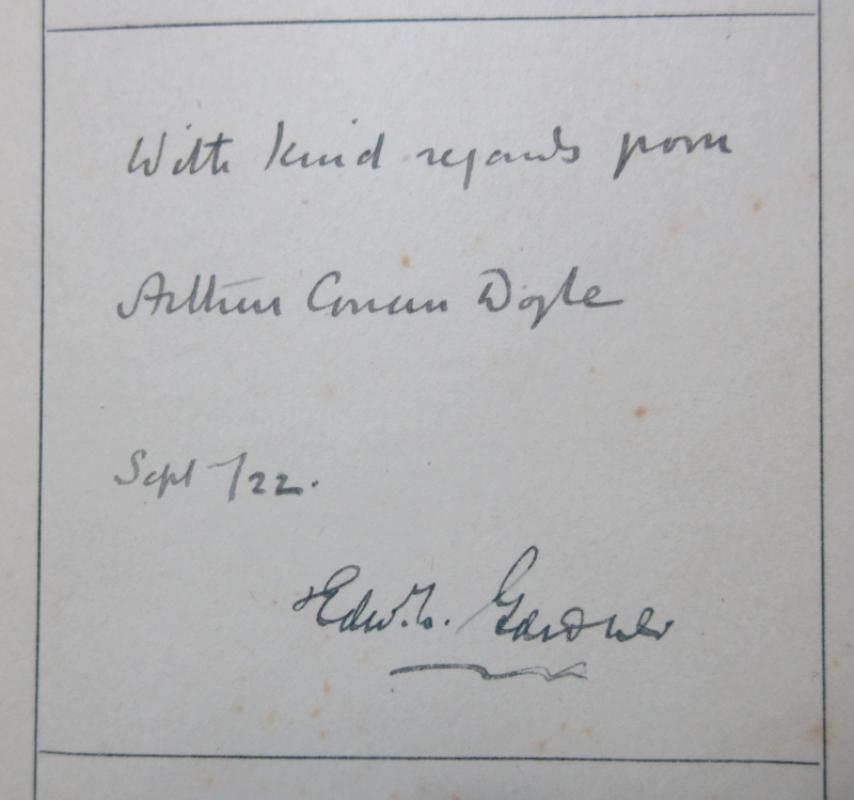 With kind regards from
Arthur Conan Doyle
Sept /22.
Edw. L. Gardner